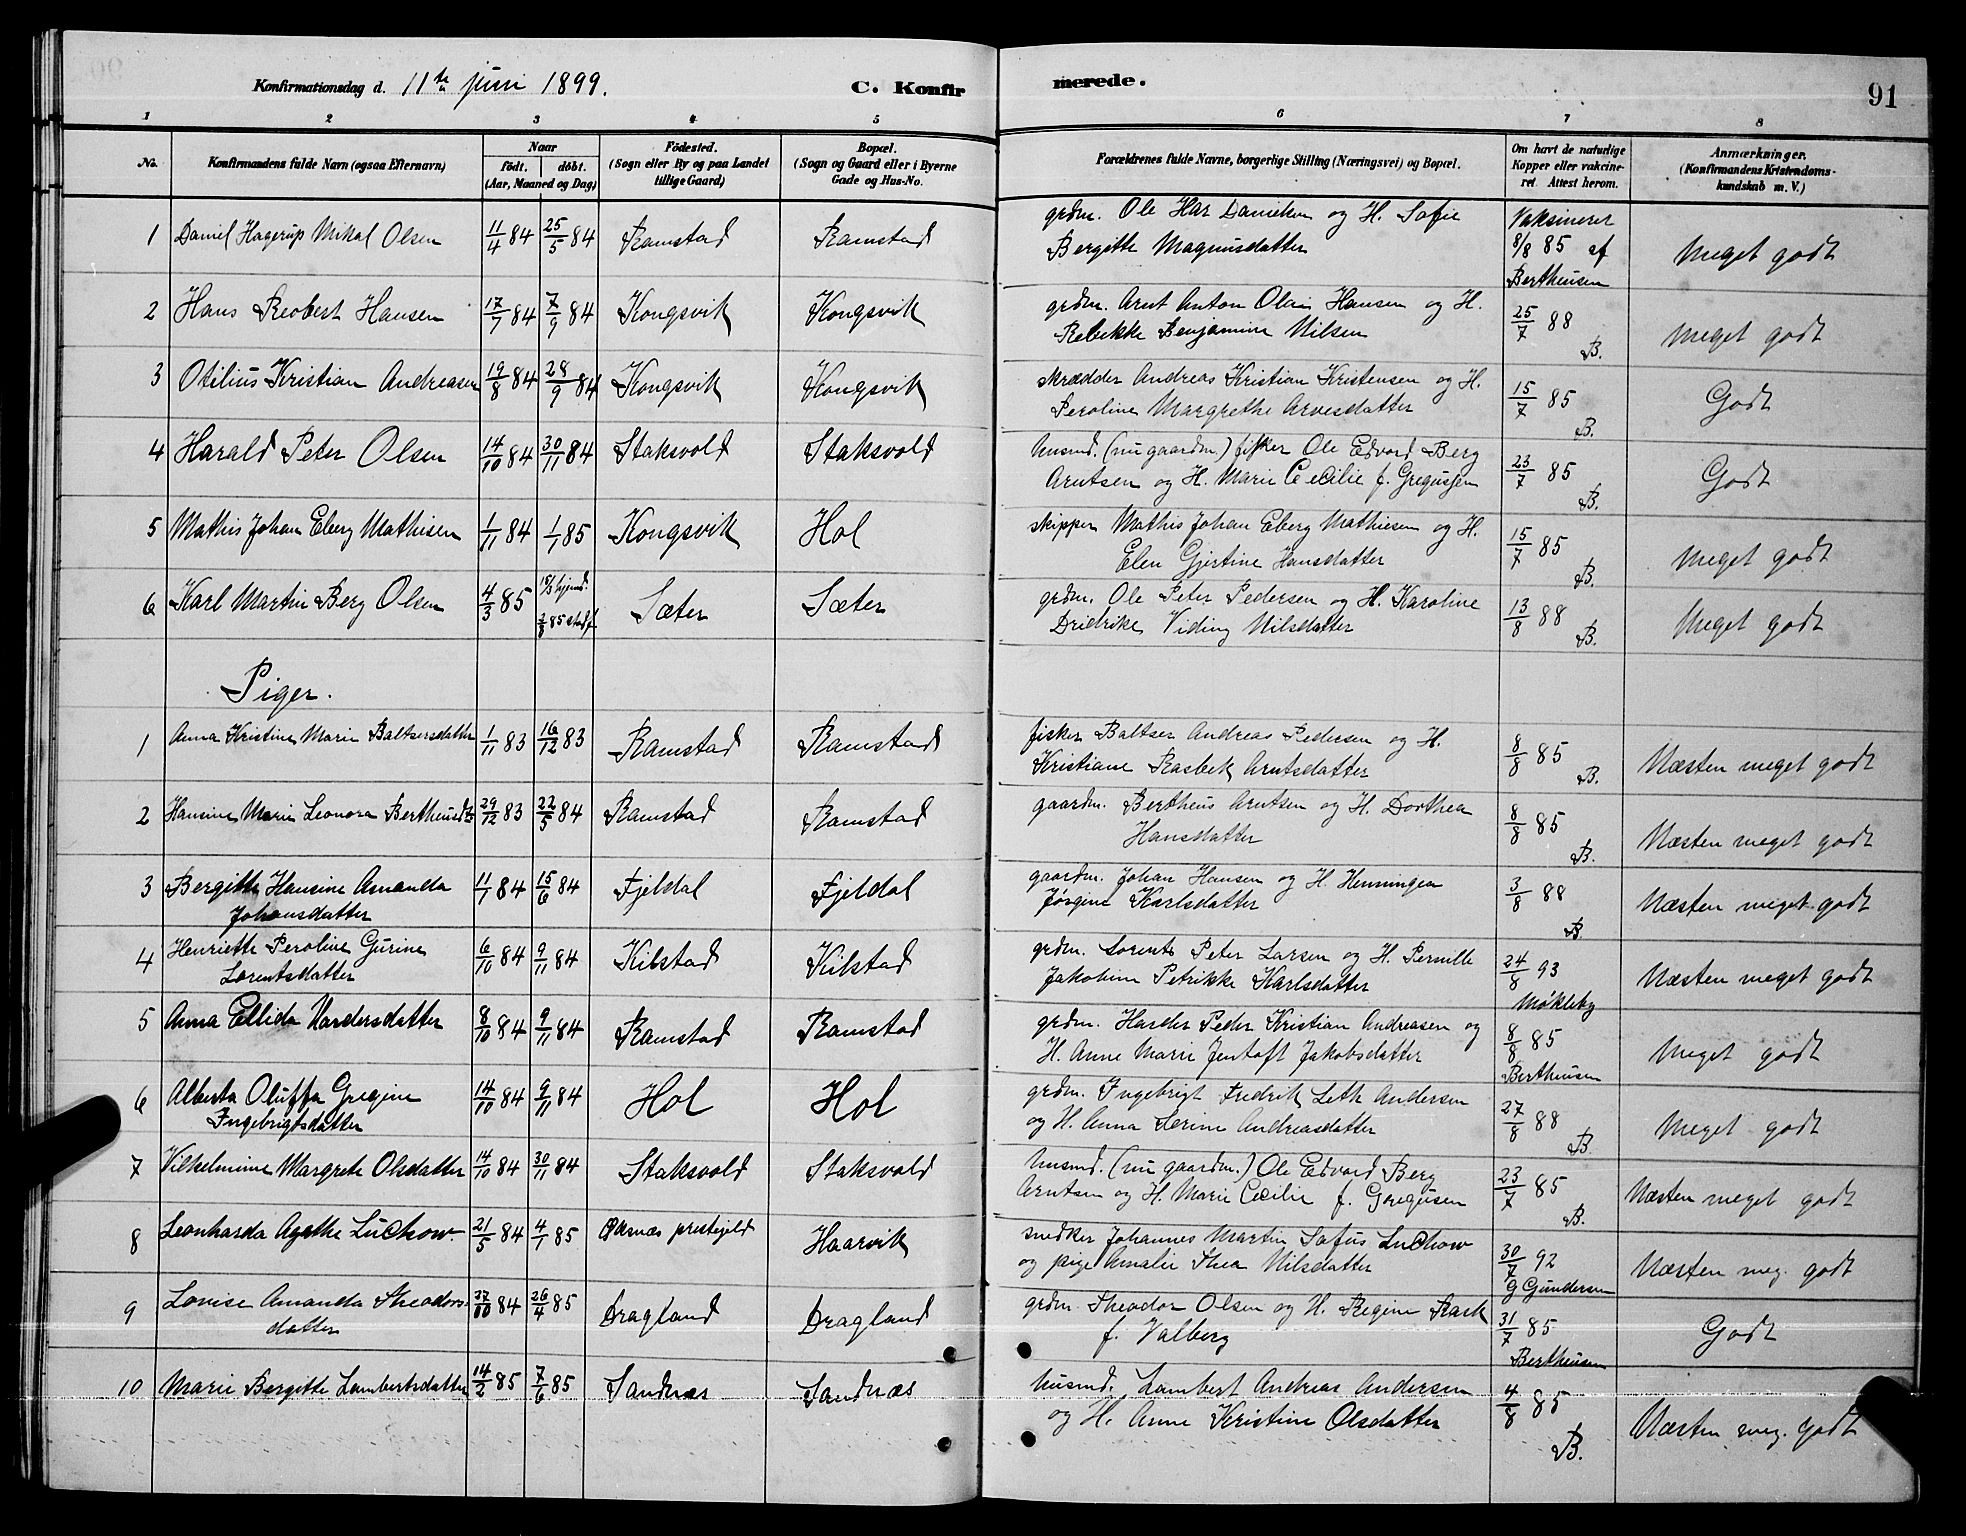 91
Konfirmationsdag d. 11te juni 1899. C. Konfirmerede.
1 2 3 4 5 6 7 8
No. Konfirmandens fulde Navn (ogsaa Efternavn) Naar født. døbt. (Aar, Maaned og Dag) Fødested. (Sogn eller By og paa Landet tillige Gaard) Bopæl. (Sogn og Gaard eller i Byerne Gade og Hus-No. Forældrenes fulde Navne, borgerlige Stilling (Næringsvei) og Bopæl. Om havt de naturlige Kopper eller vakcineret. Attest herom. Anmærkninger. (Konfirmandens Kristendomskundskab m. V.)
1 Daniel Hagerup Mikal Olsen 11/4 84 25/5 84 Ramstad Ramstad grdm. Ole Har Danielsen og H. Sofie Vaksineret
Bergitte Magnusdatter 8/8 85 af Meget godt
Bertheusen
2 Hans Robert Hansen 17/7 84 7/9 84 Kongsvik Kongsvik grdm. Arnt Anton Olai Hansen og H.
Rebekke Benjamine Nilsen 25/7 88 B. Meget godt
3 Otilius Kristian Andreasen 19/8 84 28/9 84 Kongsvik Kongsvik skrædder Andreas Kristian Kristensen og H.
Peroline Margrethe Arvesdatter 15/7 85 B. Godt
4 Harald Peter Olsen 14/10 84 30/11 84 Staksvold Staksvold husmd. (nu gaardm.) fisker Ole Edvard Berg
Arntsen og H. Marie Cecilie f. Gregussen 23/7 85 B. Godt
5 Mathis Johan Eberg Mathisen 1/11 84 1/1 85 Kongsvik Hol skipper Mathis Johan Eberg Mathiesen og H.
Elen Gjertine Hansdatter 15/7 85 B. Meget godt
6 Karl Martin Berg Olsen 4/3 85 15/3 hjemd. 85 stadf. Sæter Sæter grdm. Ole Peter Pedersen og H. Karoline
Dridrike Viding Nilsdatter 13/8 88 B. Meget godt
Piger.
1 Anna Kristine Marie Baltsersdatter 1/11 83 16/12 83 Ramstad Ramstad fisker Baltser Andreas Pedersen og H.
Kristiane Rasbek Arntsdatter 8/8 85 B. Næsten meget godt
2 Hansine Marie Leonora Bertheusdt 29/12 83 22/5 84 Ramstad Ramstad gaardm. Bertheus Arntsen og H. Dorthea
Hansdatter 8/8 85 B. Næsten meget godt
3 Bergitte Hansine Amanda 11/1 84 15/6 84 Fjeldal Fjeldal gaardm. Johan Hansen og H. Henningea
Johansdatter Jørgine Karlsdatter 3/8 88 B Næsten meget godt
4 Henriette Peroline Gurine 6/10 84 9/11 84 Kilstad Kilstad grdm. Lorents Peter Larsen og H. Pernille
Lorentsdatter Jakobine Petrikke Karlsdatter 24/8 93 Møkleby Næsten meget godt
5 Anna Ellida Hardersdatter 8/10 84 9/11 84 Ramstad Ramstad grdm. Harder Peder Kristian Andreasen og
H. Anne Marie Jentoft Jakobsdatter 8/8 85 Bertheusen Meget godt
6 Alberta Oluffa Gregine 14/10 84 9/11 84 Hol Hol grdm. Ingebrigt Fredrik Leth Andersen
Ingebrigtsdatter og H. Anna Serine Andreasdatter 27/8 88 B. Meget godt
7 Vilhelmine Margrete Olsdatter 14/10 84 30/11 84 Staksvold Staksvold husmd. (nu gaardm.) Ole Edvard Berg
Arntsen og H. Marie Cecilie f. Gregusen 23/7 85 B. Næsten meget godt
8 Leonharda Agathe Luckow 21/5 84 4/1 85 prestegjeld Haarvik snedker Johannes Martin Sofus Luckow
og pige Amalie Thea Nilsdatter 30/7 92 G Gundersen Næsten meg. godt
9 Lovise Amanda Theodors- 84 26/4 85 Dragland Dragland grdm. Theodor Olsen og H. Regine Rask
datter f. Valberg 31/7 85 Bertheusen Godt
10 Marie Bergitte Lambertsdatter 14/2 85 7/6 85 Sandnæs Sandnæs husmd. Lambert Andreas Andersen
og H. Anne Kristine Olsdatter 4/8 85 B. Næsten meg. godt